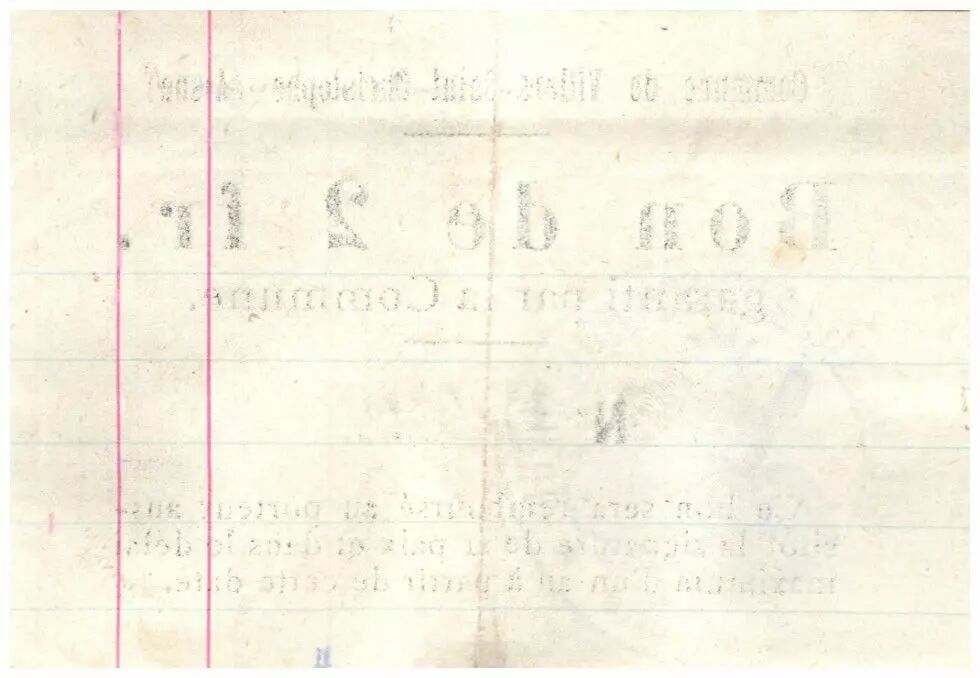 Commune de Villers-Saint-Christophe (Aisne)
Bon de 2 fr.
garanti par la Commune.
N
Ce bon sera remboursé au porteur aus-
sitôt la signature de la paix et dans le délai
maximum d'un an à partir de cette date.